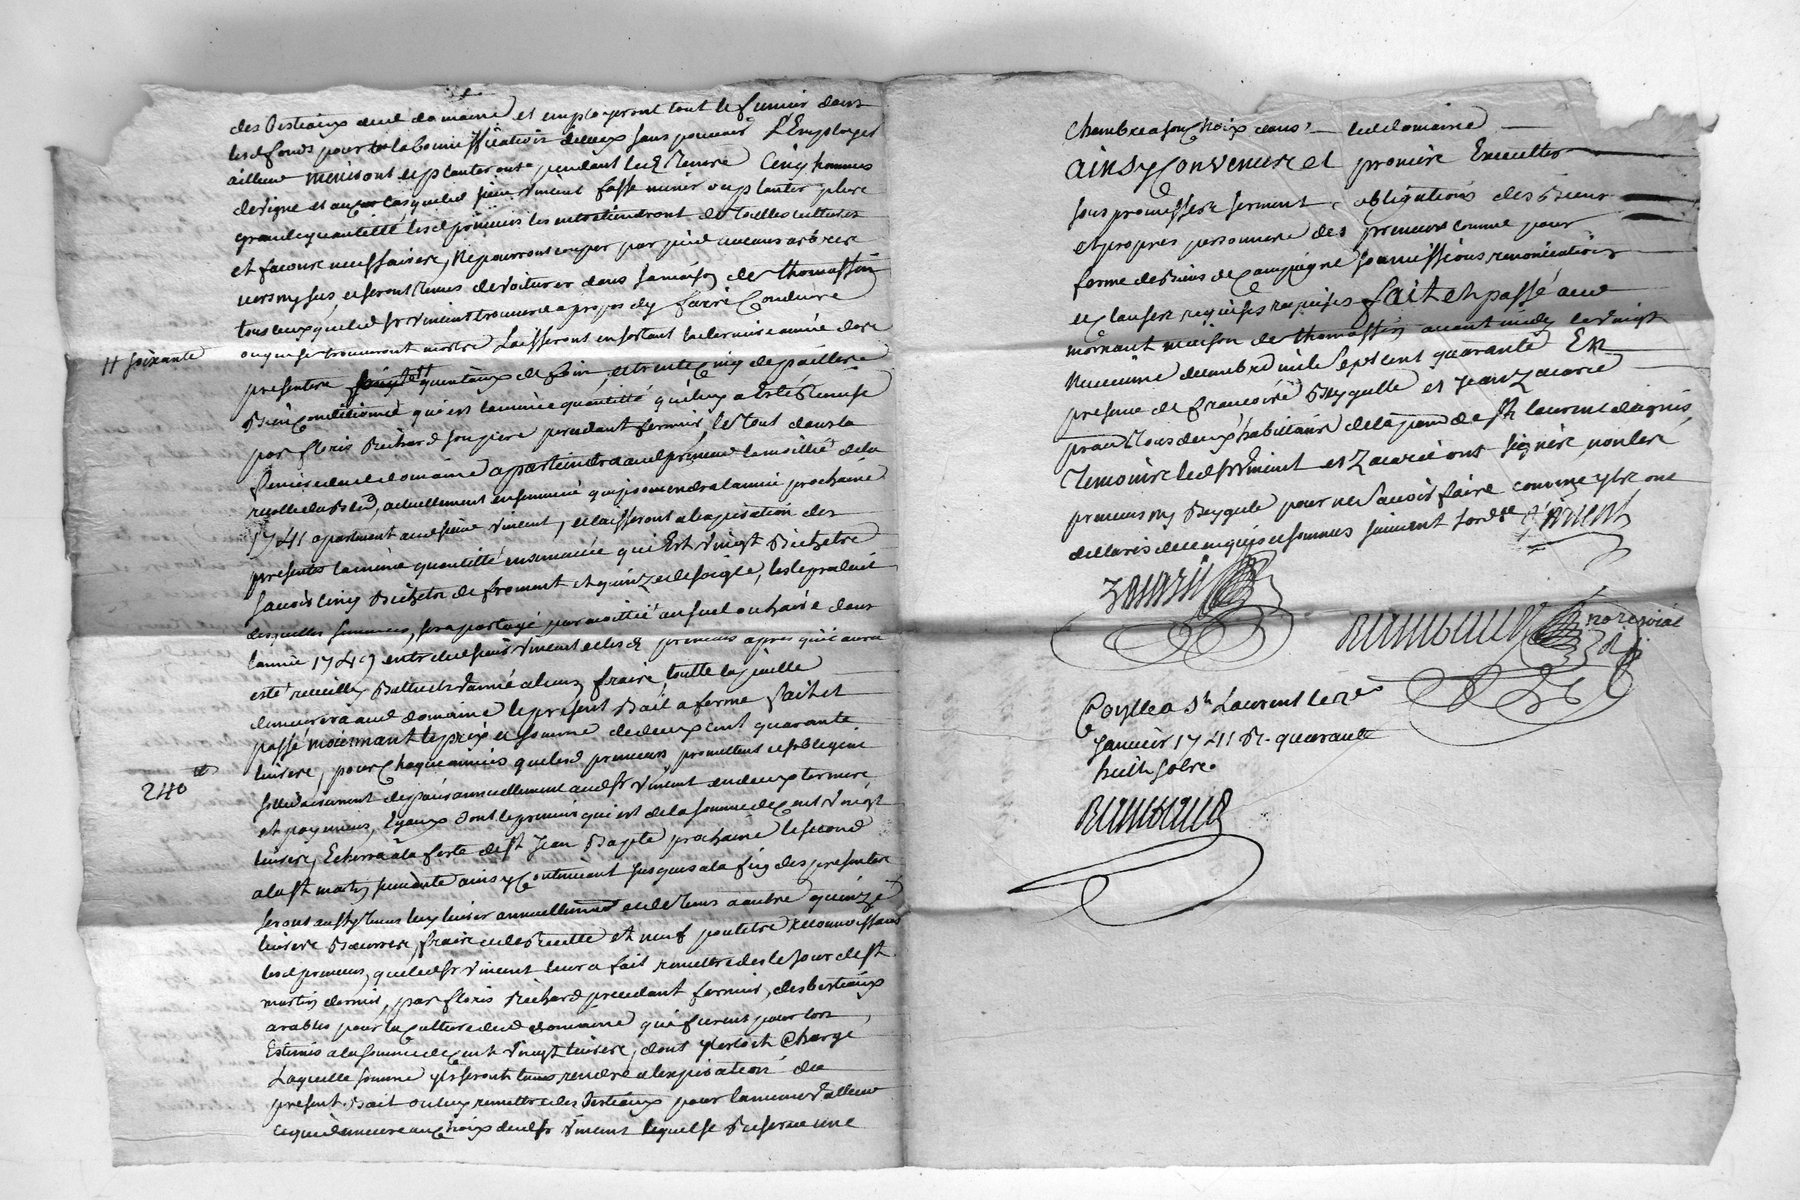 des Bestiaux dud domaine et employeront tout le fumier dans
lesd fonds pour la bonniffication diceux sans pouvoir L'Employer
ailleur miniront et planteront pendant led Terme Cinq hommes
de vigne et au cas que led sieur vincent fasse minir ou planter plus
grande quantitté lesd preneurs les entretiendront de touttes cultures
et facons necessaires, Ne pourront couper par pied aucuns arbres
vers ny secs et seront tenus de voiturer dans sa maison de thomassin
tous ceux que led sr vincent trouvera a propos d'y faire Conduire
ou qui se trouveront morts Laisseront en sortant la derniere année des
11 soixante
presentes quintaux de foin, et trente Cinq de paillies
Bien Conditionné qui est la même quantitté qui leur a esté Remise
par floris Richard son pere precedant fermier, le tout dans la
remise dud domaine apartiendra aud preneur la moittié de la
recolte du Bled, actuellement ensemencé qui se prendra l'année prochaine
1741 apartenant aud sieur vincent, et laisseront a l'expiration des
presentes la même quantitté ensemencée qui Est vingt Bichets
savoir Cinq Bichets de froment et quinze de seigle, les le produit
desquelles semences, sera partagé par moittié au suel ou haire dans
l'année 1749 entre led sieur vincent et lesd preneurs apres qu'il aura
esté recueilly Battu et vanné a leurs fraix toutte la paille
demeurera aud domaine le present Bail a ferme fait et
passé moiennant le prix et somme de deux cent quarante
240 tt
livres, pour Chaque années que lesd preneurs promettent et s'obligent
sollidairement de payer annuellement aud sr vincent en deux termes
et payemens, Egaux dont le premier qui est de la somme de Cent vingt
livres, Echerra a la feste de st Jean Bapte prochaine le second
a la st martin suivante ainsy Continuant jusques a la fin des presentes
seront aussy tenus luy livrer annuellement quinze
livres Beurre, fraix et de recette et neuf poulets reconnoissans
lesd preneurs, que led sr vincent leur a fait remettre des le jour de st
martin dernier, par floris Richard precedant fermier, des bestiaux
arables pour la Culture dud domaine qui furent pour lors
Estimés a la somme de Cent vingt livres, dont ils se sont Chargé
Laquelle somme ils seront tenus rendre a l'expiration du
present Bail ou luy remettre des Bestiaux pour la meme valleur
ce qui demeure au Choix dud sr vincent lequel se Reserve une
Chambre a son choix dans led domaine
ainsy Convenu et promis Executter
sous promesse serment, obligations des Biens
et propres personnes des preneurs comme pour
ferme de Biens de Campagne soumissions renonciations
et clauses requises fait et passé aud
mornant maison de thomassin avant midy le vingt
neuvieme decembre mil sept cent quarante En
presence de francois Reygulle et Jean Zacarie
tous deux habitans de la parr de st laurent dagnis
Temoins led sr vincent et Zacarie ont signés, non les
preneurs ny Reygule pour ne savoir faire comme ils ont
declarés de ce enquis et sommés suivant l'ordce vincent
Zacarie
Rambaud no re royal
Con lle a St Laurent le 2e
janvier 1741 R. quarante
huit sols.
Rambaud